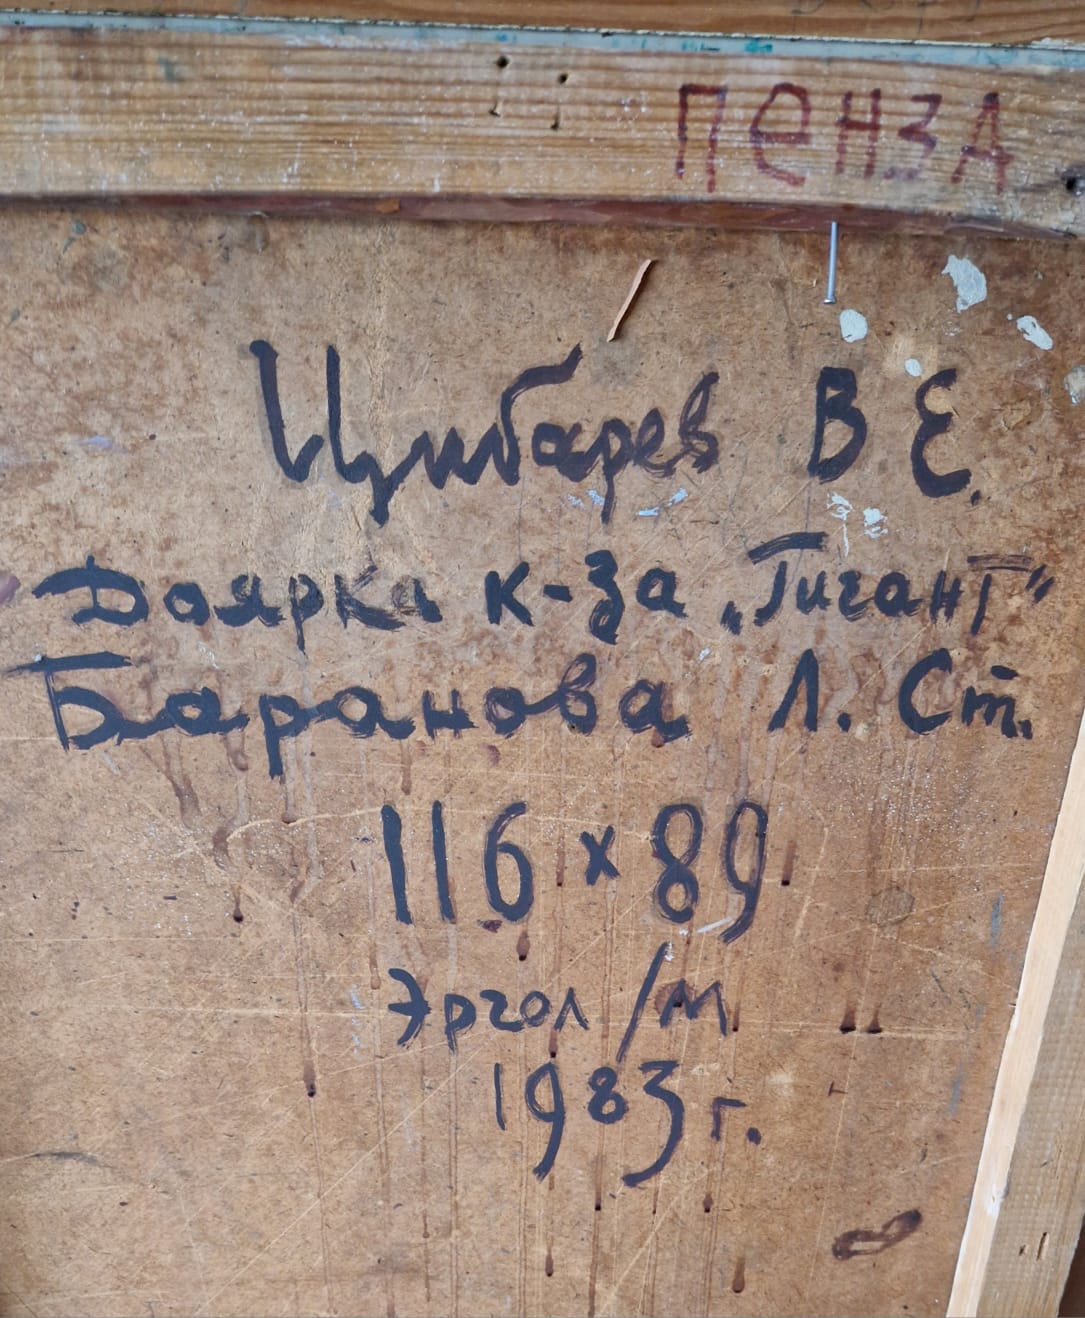 ПеНЗА
Цибарев В Е.
Доярка к-за „Гигант"
Баранова Л. Ст.
116 х 89
Эргол/м
1983 г.